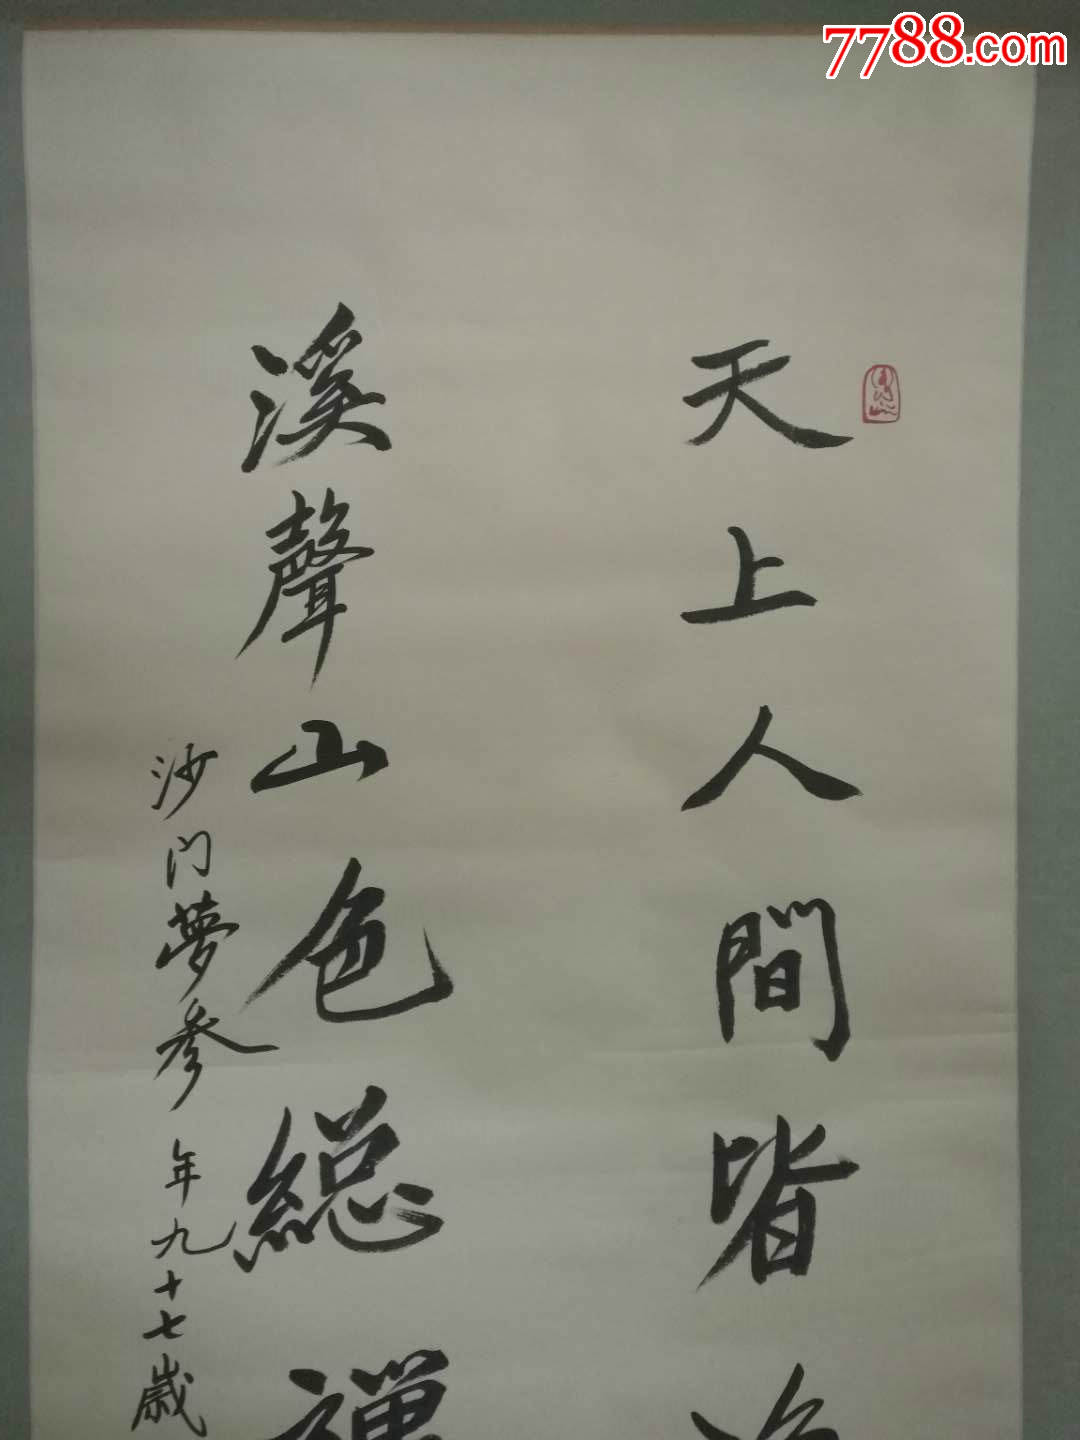 7788.com
天上人間皆
溪聲山色総禅
沙门夢参年九十七歲